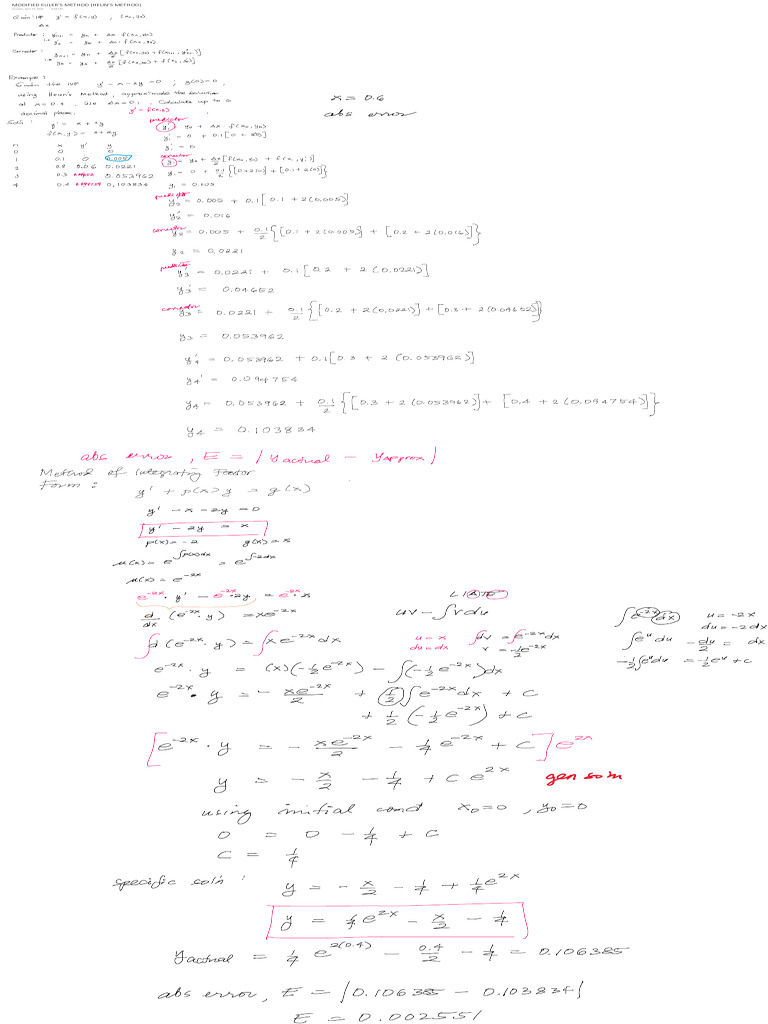 MODIFIED EULER'S METHOD (HEUN'S METHOD)
Given: IVP y' = f(x,y) , (x₀, y₀)
Δx
Predictor : y'ₙ₊₁ = yₙ + Δx f(xₙ, yₙ)
Corrector : yₙ₊₁ = yₙ + Δx/2 [f(xₙ,yₙ) + f(xₙ₊₁, y'ₙ₊₁)]
Example :
Given the IVP y' - x - 2y = 0 ; y(0) = 0 ,
using Heun's Method, approximate the solution
at x = 0.4 . Use Δx = 0.1 . Calculate up to 6
decimal places.
x = 0.6
abs error
y' = f(x,y)
Soln : y' = x + 2y
f(x,y) = x + 2y
n x y' y
0 0 0
1 0.1 0 0.005
2 0.2 0.016 0.0221
3 0.3 0.053962
4 0.4 0.103834
predictor
y₁' = y₀ + Δx f(x₀, y₀)
y₁' = 0 + 0.1[0 + 2(0)]
y₁' = 0
corrector
y₁ = y₀ + Δx/2 [f(x₀, y₀) + f(x₁, y₁')]
y₁ = 0 + 0.1/2 {[0+2(0)] + [0.1+2(0)]}
y₁ = 0.005
predictor
y₂' = 0.005 + 0.1[0.1 + 2(0.005)]
y₂' = 0.016
corrector
y₂ = 0.005 + 0.1/2 {[0.1 + 2(0.005)] + [0.2 + 2(0.016)]}
y₂ = 0.0221
predictor
y₃' = 0.0221 + 0.1[0.2 + 2(0.0221)]
y₃' = 0.04652
corrector
y₃ = 0.0221 + 0.1/2 {[0.2 + 2(0.0221)] + [0.3 + 2(0.04652)]}
y₃ = 0.053962
y₄' = 0.053962 + 0.1[0.3 + 2(0.053962)]
y₄' = 0.094754
y₄ = 0.053962 + 0.1/2 {[0.3 + 2(0.053962)] + [0.4 + 2(0.094754)]}
y₄ = 0.103834
abs error , E = |yactual - yapprox|
Method of Integrating Factor
Form :
y' + p(x)y = g(x)
y' - x - 2y = 0
y' - 2y = x
p(x) = -2 g(x) = x
μ(x) = e^∫p(x)dx = e^∫-2dx
μ(x) = e^-2x
e^-2x · y' - e^-2x · 2y = e^-2x · x
LIATE
d/dx (e^-2x · y) = xe^-2x
uv - ∫vdu
∫e^-2x dx u = -2x
du = -2dx
∫d(e^-2x · y) = ∫xe^-2x dx
u = x ∫dv = ∫e^-2x dx
du = dx v = -1/2 e^-2x
∫e^u du -du/2 = dx
-1/2 ∫e^u du = -1/2 e^u + c
e^-2x · y = (x)(-1/2 e^-2x) - ∫(-1/2 e^-2x)dx
e^-2x · y = - xe^-2x/2 + (1/2)∫e^-2x dx + c
+ 1/2 (-1/2 e^-2x) + c
[e^-2x · y = - xe^-2x/2 - 1/4 e^-2x + c] e^2x
y = - x/2 - 1/4 + ce^2x gen soln
using initial cond x₀ = 0 , y₀ = 0
0 = 0 - 1/4 + c
c = 1/4
specific soln :
y = - x/2 - 1/4 + 1/4 e^2x
y = 1/4 e^2x - x/2 - 1/4
yactual = 1/4 e^2(0.4) - 0.4/2 - 1/4 = 0.106385
abs error, E = |0.106385 - 0.103834|
E = 0.002551